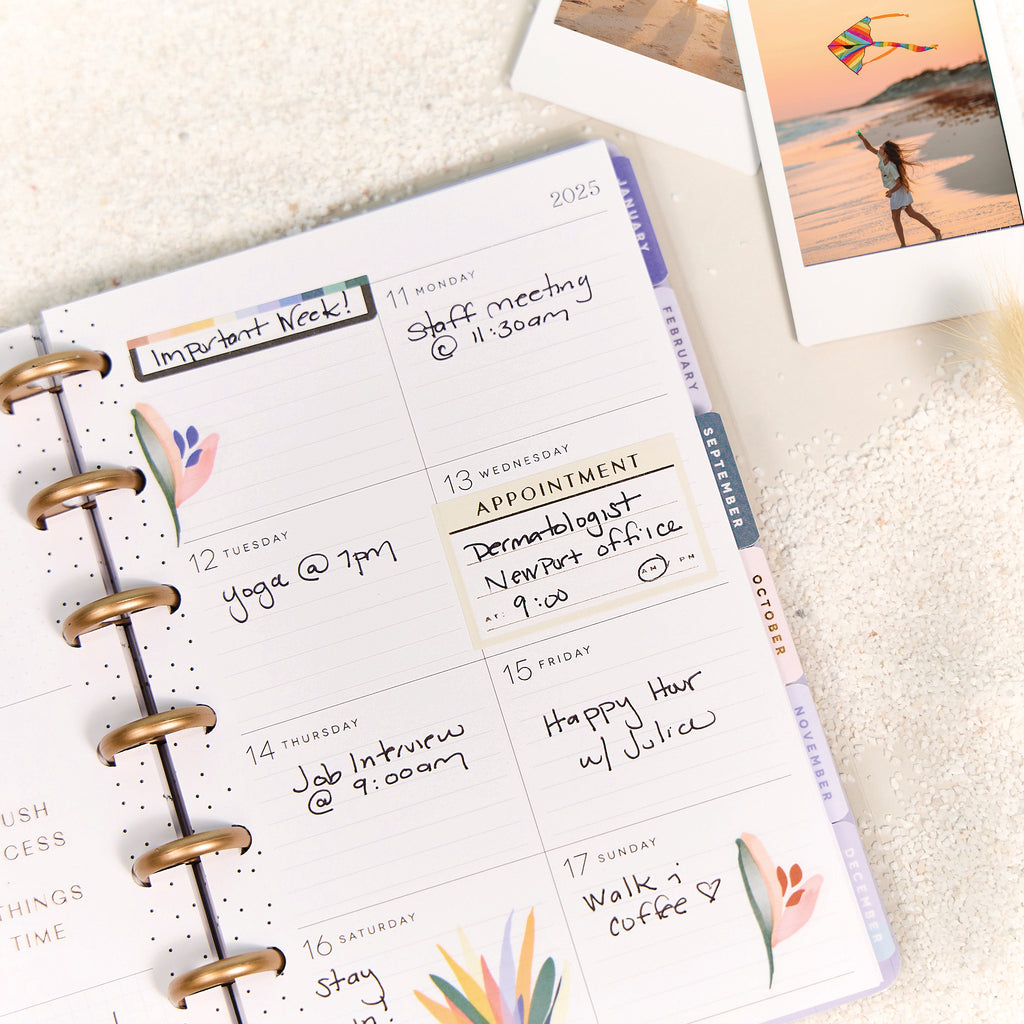 2025
Important Week!
11 MONDAY
staff meeting
@ 11:30am
12 TUESDAY
yoga @ 7pm
13 WEDNESDAY
APPOINTMENT
Dermatologist
Newport office
AM PM
AT: 9:00
14 THURSDAY
Job Interview
@ 9:00am
15 FRIDAY
Happy Hour
w/ Julia
16 SATURDAY
stay
in!
17 SUNDAY
Walk &
coffee ♡
JANUARY
FEBRUARY
SEPTEMBER
OCTOBER
NOVEMBER
DECEMBER
USH
CESS
THINGS
TIME